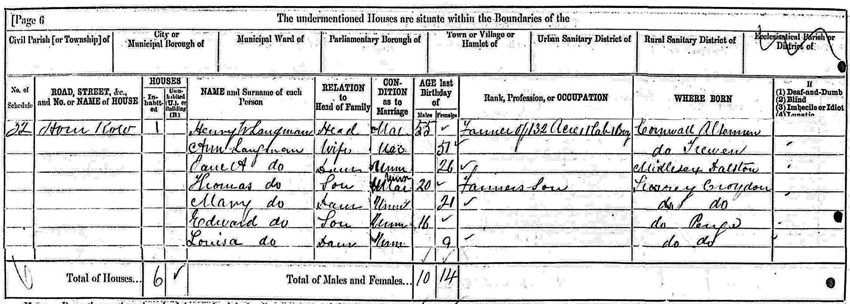 [Page 6
The undermentioned Houses are situate within the Boundaries of the
Civil Parish [or Township] of
City or Municipal Borough of
Municipal Ward of
Parliamentary Borough of
Town or Village or Hamlet of
Urban Sanitary District of
Rural Sanitary District of
Ecclesiastical Parish or District of
No. of Schedule
ROAD, STREET, &c., and No. or NAME of HOUSE
HOUSES
In-habit-ed
Unin-habited (U.), or Building (B.)
NAME and Surname of each Person
RELATION to Head of Family
CON-DITION as to Marriage
AGE last Birthday of
Males
Females
Rank, Profession, or OCCUPATION
WHERE BORN
If
(1) Deaf-and-Dumb
(2) Blind
(3) Imbecile or Idiot
(4) Lunatic
32 1 Henry Langman Head Mar 55 Farmer of 132 Acres 1 Lab 1 Boy Cornwall
Ann Langman Wife do
do Daur Unm 26 Middlesex Dalston
Thomas do Son Unm 20 Farmers Son Surrey Croydon
Mary do Daur Unm 21 do do
Edward do Son Unm 16 do Penge
Louisa do Daur Unm 9 do do
Total of Houses... 6
Total of Males and Females... 10 14